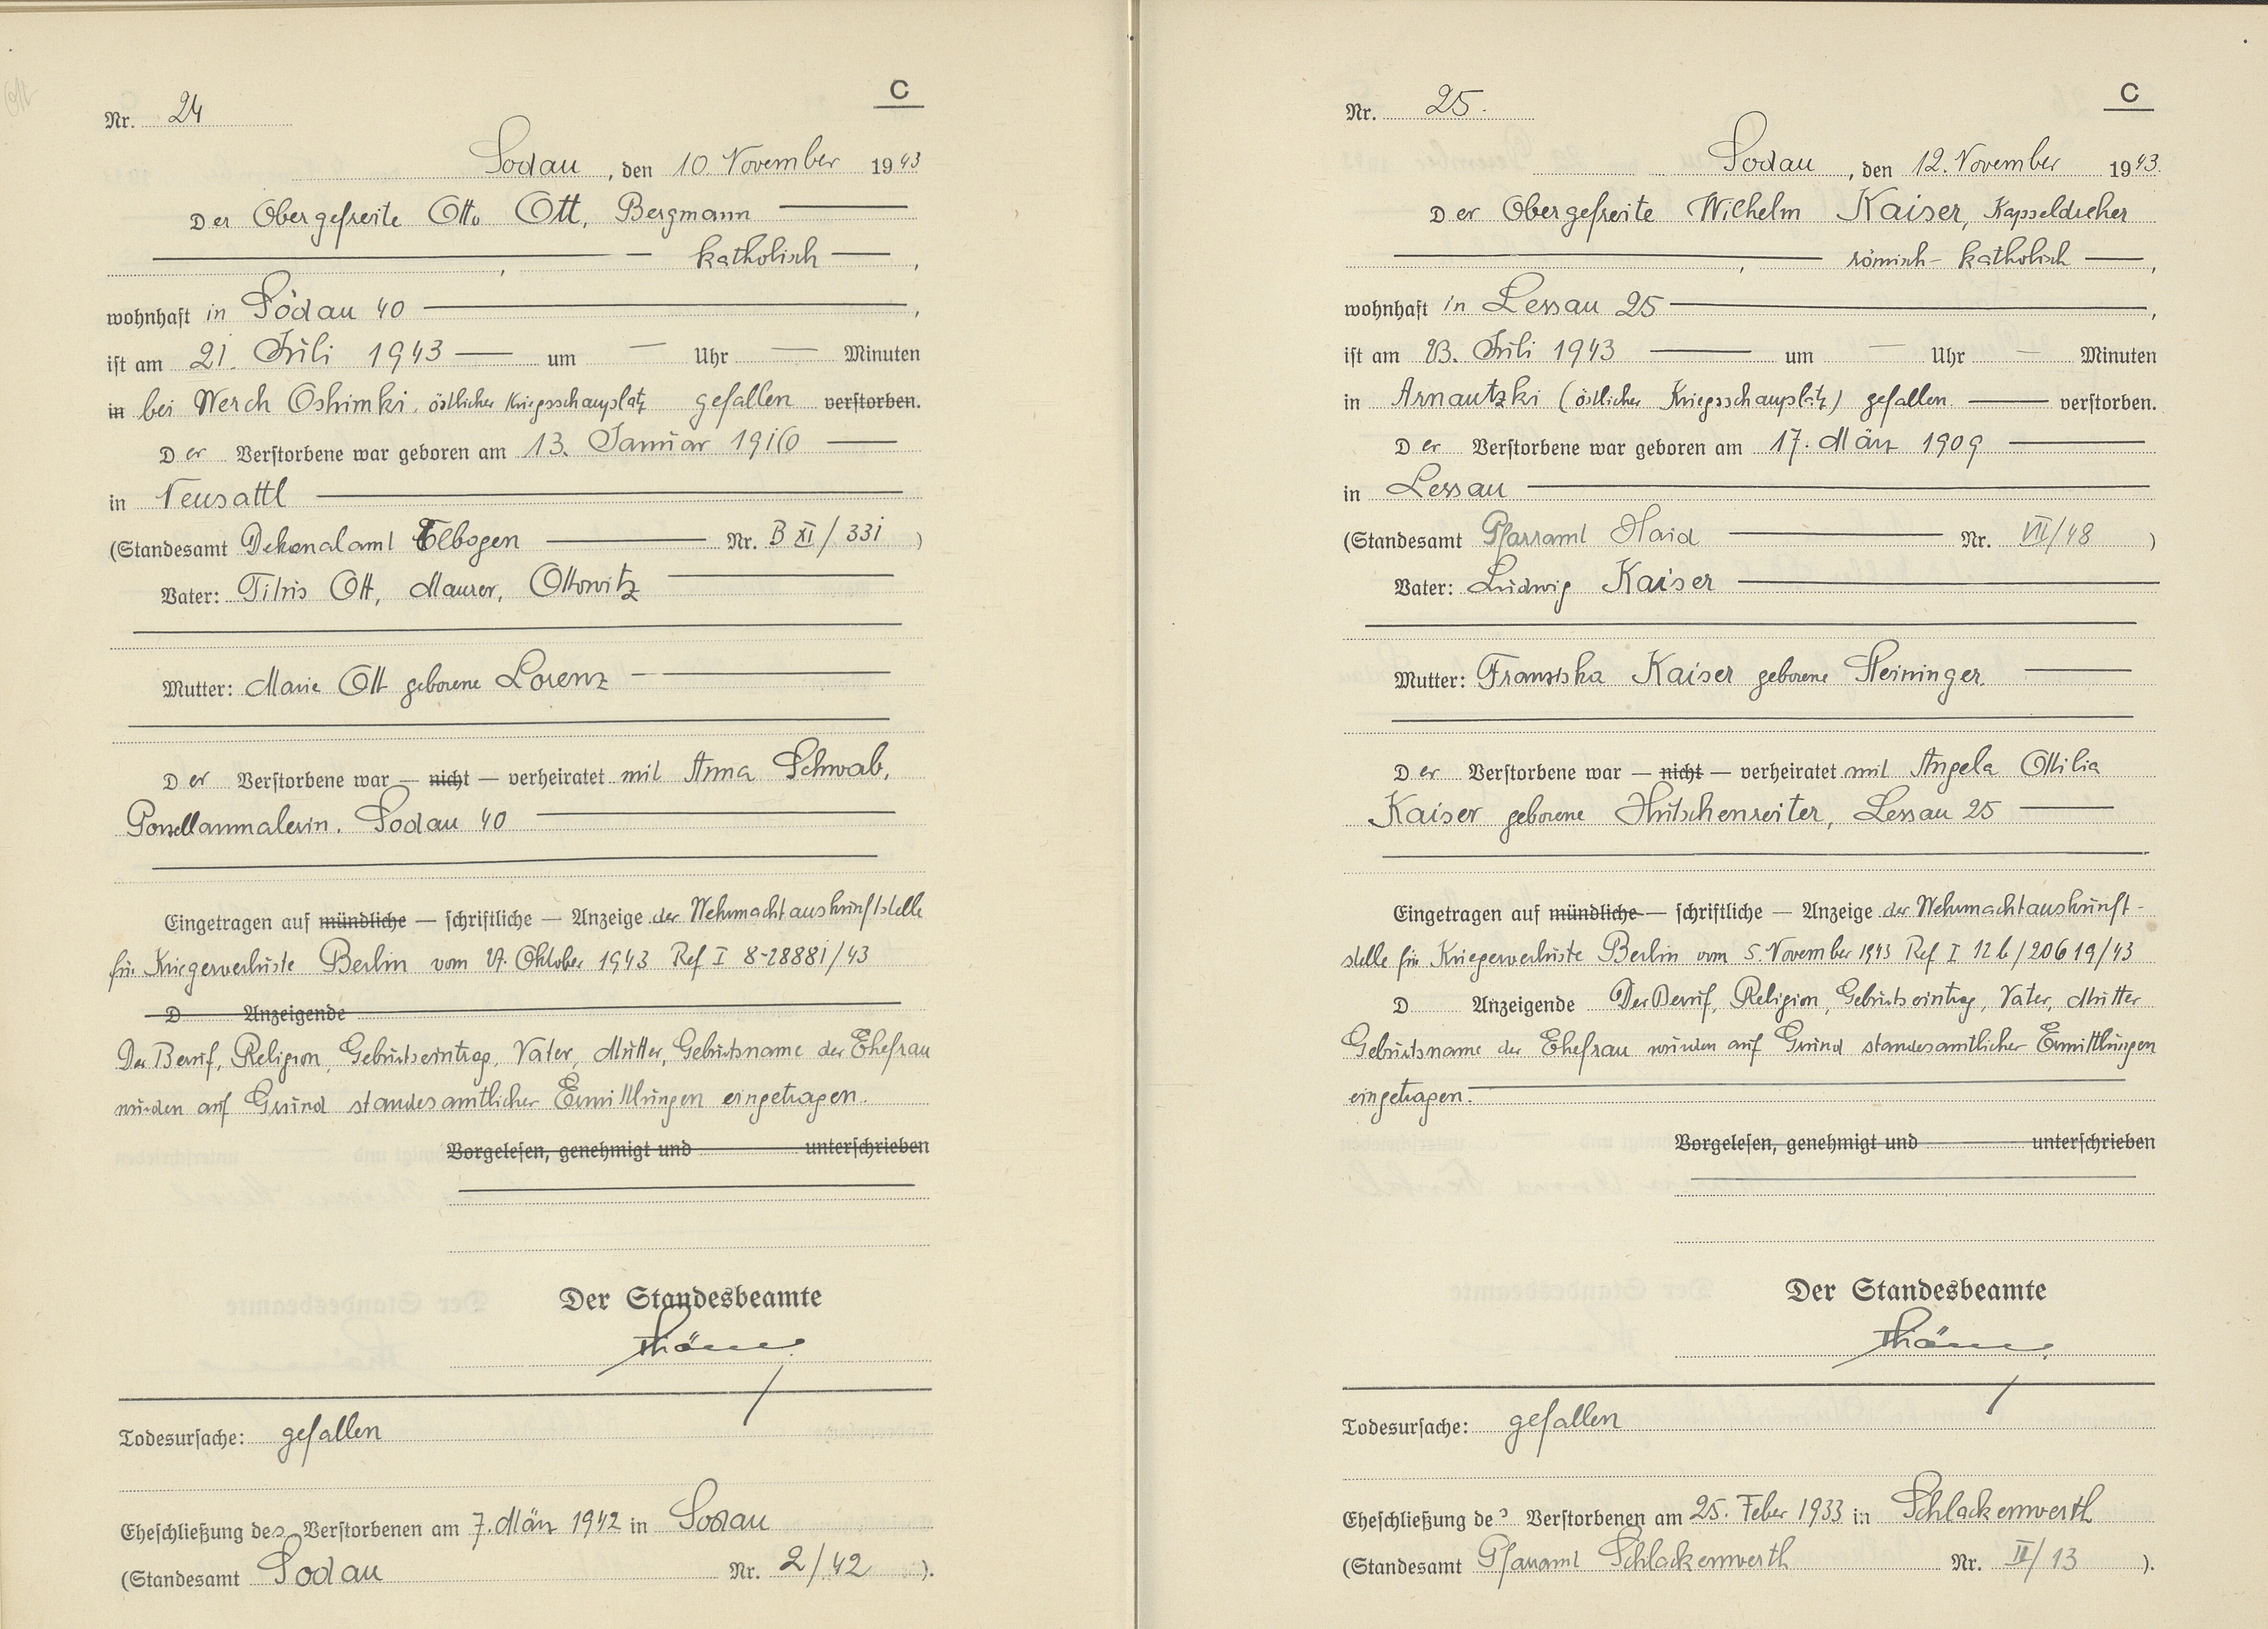 C
Nr. 24
Sodau, den 10. November 1943
Der Obergefreite Otto Ott, Bergmann
katholisch,
wohnhaft in Sodau 40,
ist am 21. Juli 1943 um — Uhr — Minuten
in bei Werch Oshimki, östlicher Kriegsschauplatz gefallen verstorben.
Der Verstorbene war geboren am 13. Januar 1910
in Neusattl
(Standesamt Dekanalamt Elbogen Nr. B XI/331)
Vater: Titus Ott, Maurer, Ottowitz
Mutter: Marie Ott geborene Lorenz
Der Verstorbene war — nicht — verheiratet mit Anna Schwab,
Porzellanmalerin. Sodau 40
Eingetragen auf mündliche — schriftliche — Anzeige der Wehrmachtauskunftstelle
für Kriegerverluste Berlin vom 27. Oktober 1943 Ref I 8-28881/43
D Anzeigende
Der Beruf, Religion, Geburtseintrag, Vater, Mutter, Geburtsname der Ehefrau
wurden auf Grund standesamtlicher Ermittlungen eingetragen.
Vorgelesen, genehmigt und unterschrieben
Der Standesbeamte
Todesursache: gefallen
Eheschließung des Verstorbenen am 7. März 1942 in Sodau
(Standesamt Sodau Nr. 2/42).
C
Nr. 25.
Sodau, den 12. November 1943.
Der Obergefreite Wilhelm Kaiser, Kapseldreher
römisch-katholisch,
wohnhaft in Lessau 25,
ist am 23. Juli 1943 um — Uhr — Minuten
in Arnautzki (östlicher Kriegsschauplatz) gefallen. verstorben.
Der Verstorbene war geboren am 17. März 1909
in Lessau
(Standesamt Pfarramt Haid Nr. VII/48)
Vater: Ludwig Kaiser
Mutter: Franziska Kaiser geborene Steininger.
Der Verstorbene war — nicht — verheiratet mit Angela Ottilia
Kaiser geborene Hutschenreiter, Lessau 25
Eingetragen auf mündliche — schriftliche — Anzeige der Wehrmachtauskunft-
stelle für Kriegerverluste Berlin vom 5. November 1943 Ref I 12 b/20619/43
D Anzeigende Der Beruf, Religion, Geburtseintrag, Vater, Mutter
Geburtsname der Ehefrau wurden auf Grund standesamtlicher Ermittlungen
eingetragen.
Vorgelesen, genehmigt und unterschrieben
Der Standesbeamte
Todesursache: gefallen
Eheschließung des Verstorbenen am 25. Feber 1933 in Schlackenwerth
(Standesamt Pfarramt Schlackenwerth Nr. II/13).